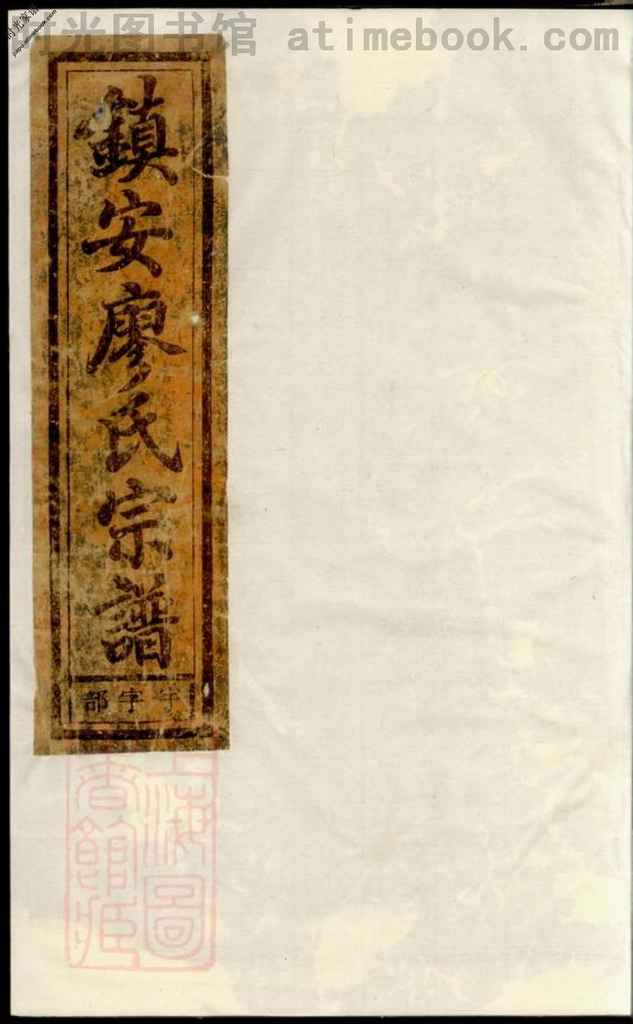 时光图书馆 atimebook.com
鎮安廖氏宗譜
字字部
上海圖
書館藏